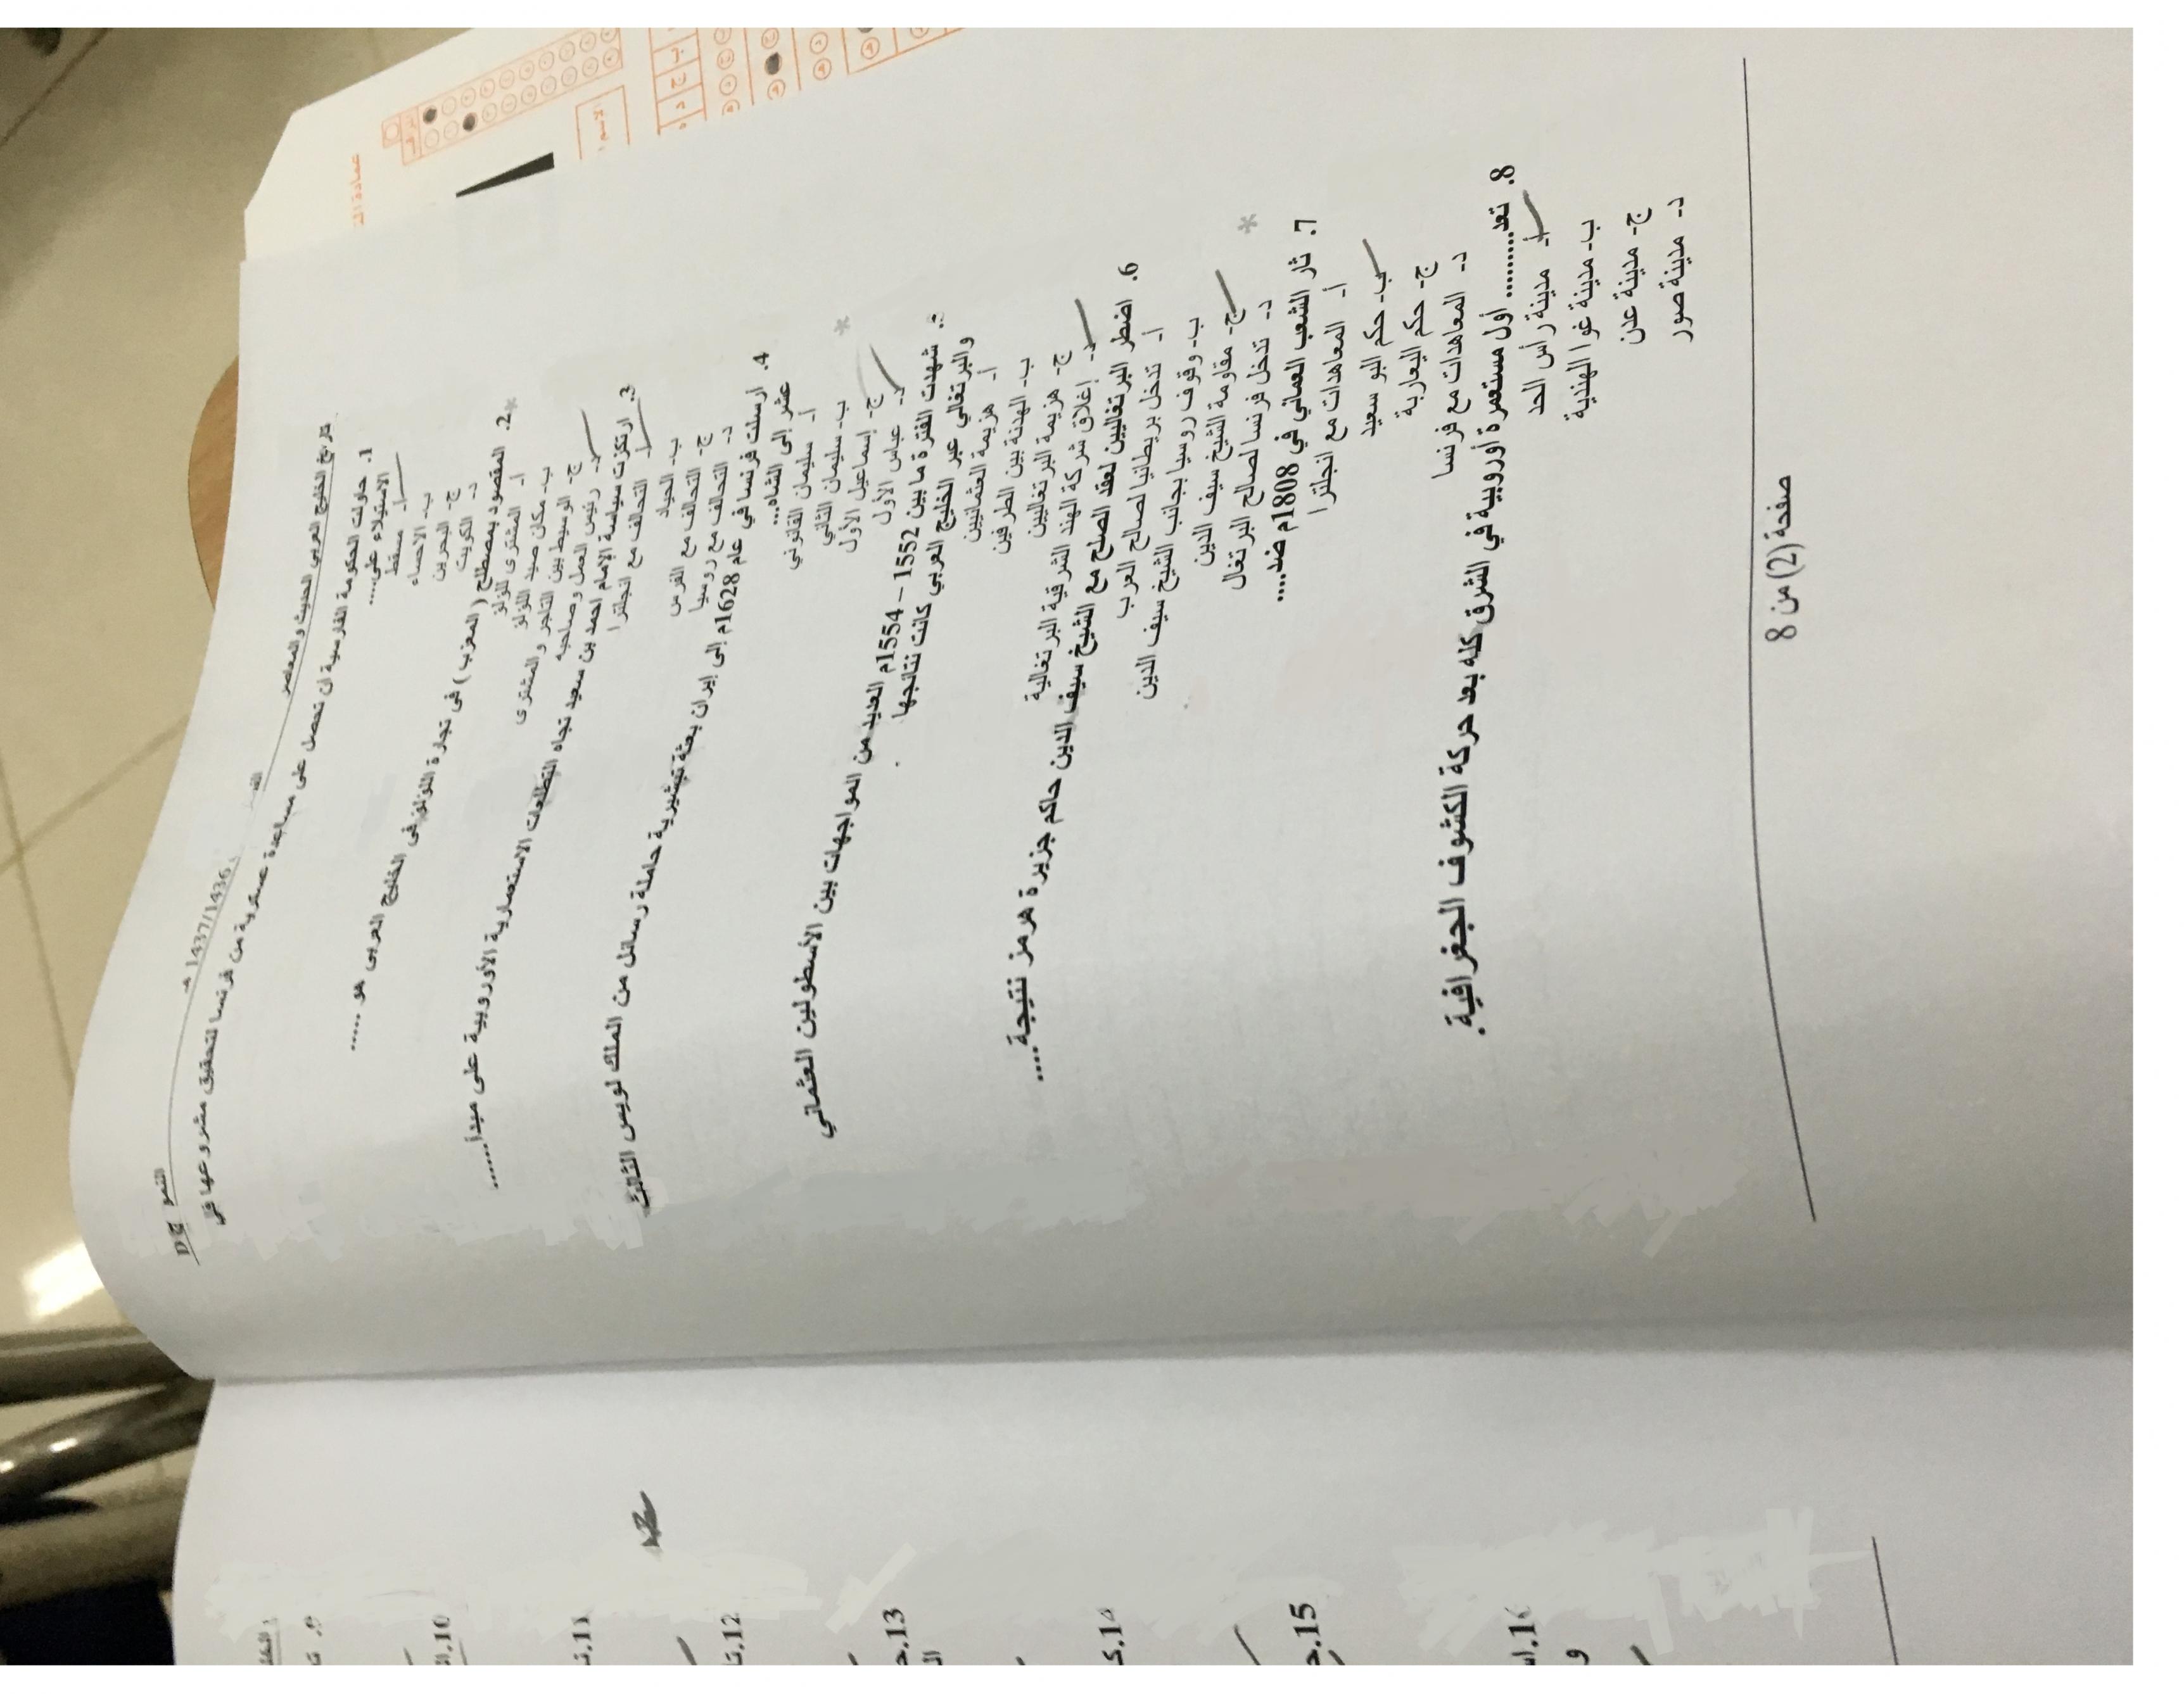 تاريخ الخليج العربي الحديث والمعاصر
1437/1436 هـ
النمو ذج D
1. حاولت الحكومة الفارسية ان تحصل على مساعدة عسكرية من فرنسا لتحقيق مشروعها في الاستيلاء على.....
أ- مسقط
ب- الاحساء
ج- البحرين
د- الكويت
2. المقصود بمصطلح ( المعزب ) في تجارة اللؤلؤ في الخليج العربي هو ......
أ- المشترى للؤلؤ
ب- مكان صيد اللؤلؤ
ج- الوسيط بين التاجر والمشترى
د- رئيس العمل وصاحبه
3. ارتكزت سياسة الإمام احمد بن سعيد تجاه التطلعات الاستعمارية الأوروبية على مبدأ.......
أ- التحالف مع انجلترا
ب- الحياد
ج- التحالف مع الفرس
د- التحالف مع روسيا
4. أرسلت فرنسا في عام 1628م إلى إيران بعثة تبشيرية حاملة رسائل من الملك لويس الثالث
عشر إلى الشاه...
أ- سليمان القانوني
ب- سليمان الثاني
ج- إسماعيل الأول
د- عباس الأول
5. شهدت الفترة ما بين 1552 – 1554م العديد من المواجهات بين الأسطولين العثماني
والبرتغالي عبر الخليج العربي كانت نتائجها
أ- هزيمة العثمانيين
ب- الهدنة بين الطرفين
ج- هزيمة البرتغاليين
د- إغلاق شركة الهند الشرقية البرتغالية
6. اضطر البرتغاليين لعقد الصلح مع الشيخ سيف الدين حاكم جزيرة هرمز نتيجة....
أ- تدخل بريطانيا لصالح العرب
ب- وقوف روسيا بجانب الشيخ سيف الدين
ج- مقاومة الشيخ سيف الدين
د- تدخل فرنسا لصالح البرتغال
7. ثار الشعب العماني في 1808م ضد....
أ- المعاهدات مع انجلترا
ب- حكم البو سعيد
ج- حكم اليعاربة
د- المعاهدات مع فرنسا
8. تعد......... أول مستعمرة أوروبية في الشرق كله بعد حركة الكشوف الجغرافية.
أ- مدينة رأس الحد
ب- مدينة غوا الهندية
ج- مدينة عدن
د- مدينة صور
صفحة (2) من 8
عمادة
الاسم
أ ب ج د
9.
10.
11.
12.
13.
15.